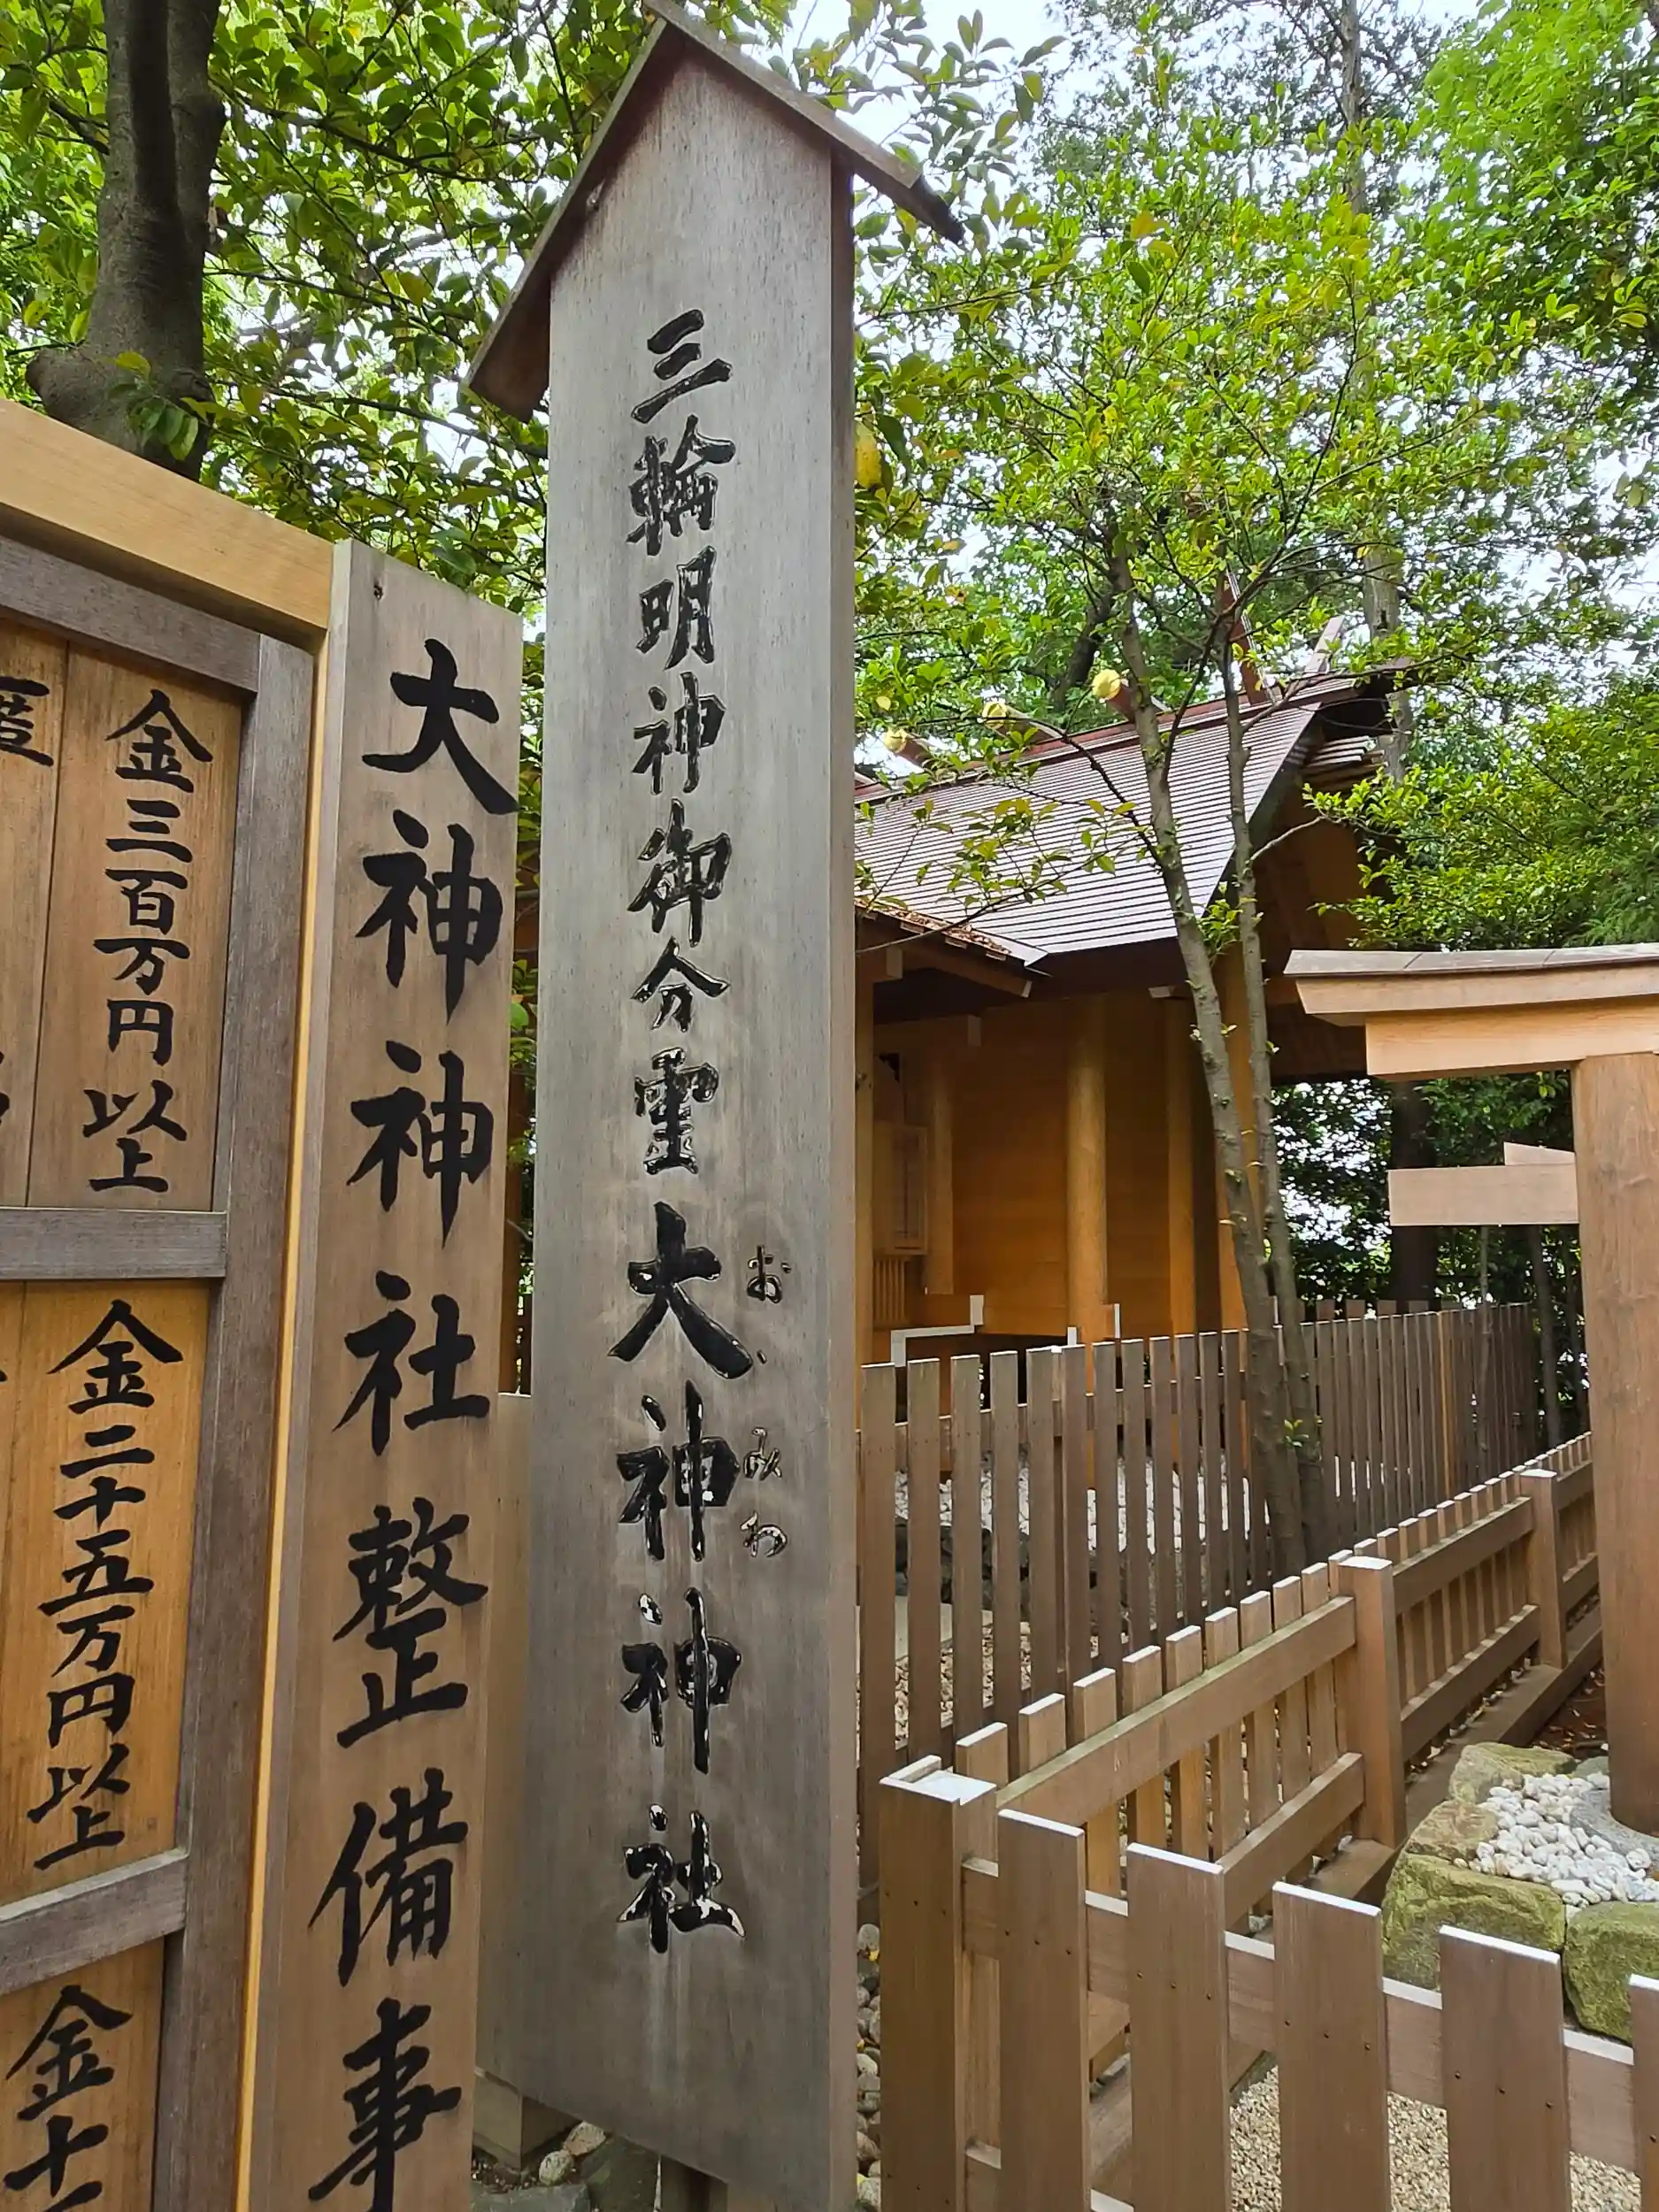 三輪明神御分霊大神神社
お、みわ
大神神社整備事
金三百万円以上
金二十五万円以上
金十